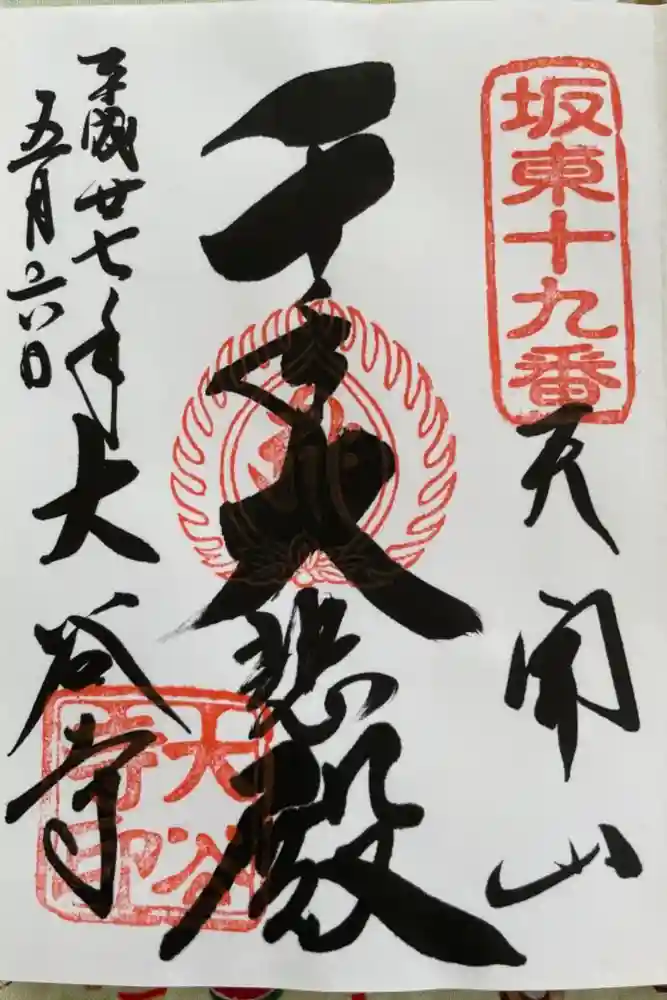 坂東十九番
天開山
千手大悲殿
平成廿七年
五月六日
大谷寺
大谷寺印